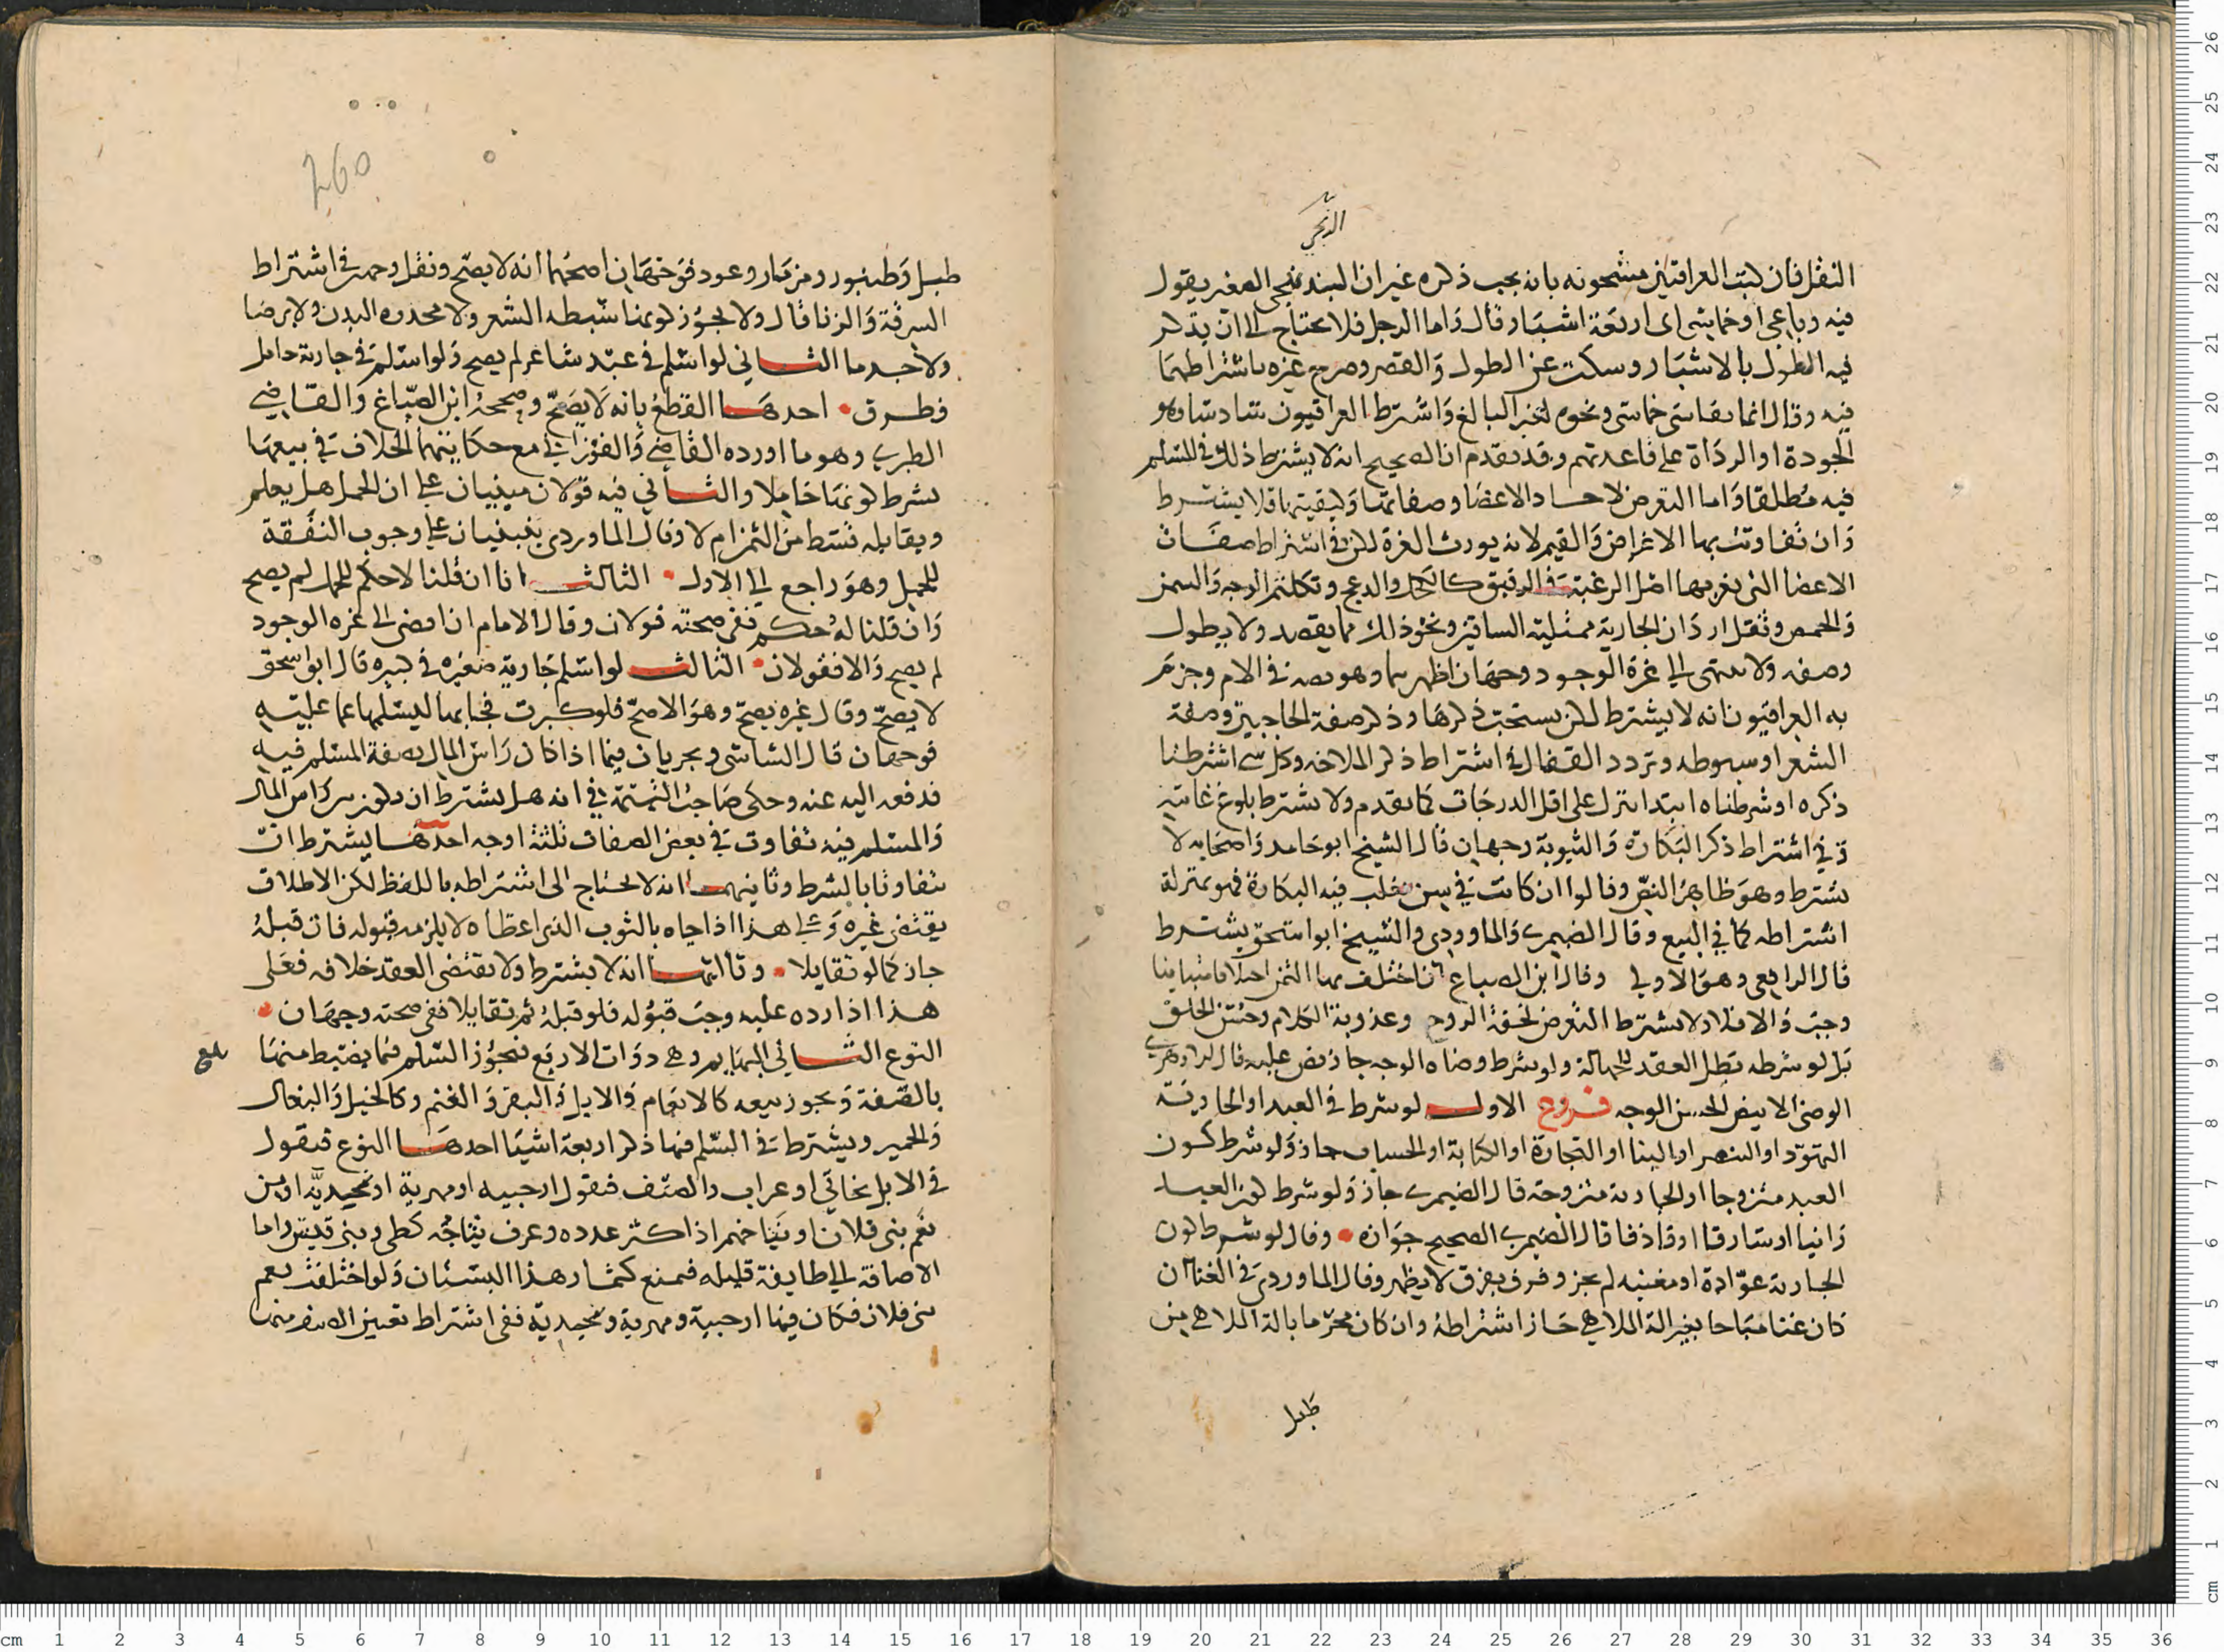 النقل فان كتب العراقيين مشحونه بانه يجب ذكره غير ان البندنيجى المغير يقول
فيه رباعى او خماسى اى اربعة اشبار وقال واما الرجل فلا يحتاج الى ان يذكر
فيه الطول بالاشبار وسكت عن الطول والقصر وصرح غيره باشتراطهما
فيه وقال انما يقاس خماسى ونحوه لغير البالغ واشترط العراقيون
الجودة او الرداة على قاعدتهم وقد تقدم ان الصحيح انه لا يشترط ذلك فى المسلم
فيه مطلقا واما التعرض لاحاد الاعضا وصفاتها وكيفيتها فلا يشترط
وان تفاوتت بها الاغراض والقيم لانه يورث العزة لكن فى اشتراط صفات
الاعضا التى يعرفها اهل الرغبة فى الرقيق كالكحل والدعج وتكلثم الوجه والسمن
والخمص وثقل ارداف الجارية الساقين ونحو ذلك مما يقصد ولا يطول
وصفه ولا ينتهى الى عزة الوجود وجهان اظهرهما وهو نصه فى الام وجزم
به العراقيون انه لا يشترط لكن يستحب ذكرها وذكر صفة الحاجبين وصفة
الشعر او سبوطه وتردد القفال فى اشتراط ذكر الملاحه وكل شى اشترطنا
ذكره او شرطناه ابتدا ينزل على اقل الدرجات كما تقدم ولا يشترط بلوغ غايته
وفى اشتراط ذكر البكارة والثيوبة وجهان قال الشيخ ابو حامد واصحابه لا
يشترط وهو ظاهر النص وقالوا ان كانت فى سن يغلب فيه البكارة فهو بمنزلة
اشتراطه كما فى البيع وقال الصيمرى والماوردى والشيخ ابو اسحق يشترط
قال الرافعى وهو الاولى وقال ابن الصباغ ان اختلف بها الثمن اختلافا متباينا
وجب والا فلا ولا يشترط التعرض لخفة الروح وعذوبة الكلام وحسن الخلق
بل لو شرطه بطل العقد للجهالة ولو شرط وضاه الوجه جاز نص عليه قال
الوضى الابيض الحسن الوجه فروع الاول لو شرط فى العبد او الجارية
التهود او التنصر او البنا او التجارة او الكتابة او الحساب جاز ولو شرط كون
العبد متزوجا او الجارية متزوجة قال الصيمرى جاز ولو شرط كون العبد
زانيا او سارقا او قاذفا قال الصيمرى الصحيح جوازه وقال لو شرط كون
الجارية عوادة او مغنيه لم يجز وفرق بفرق لا يظهر وقال الماوردى فى الغنا ان
كان غنا مباحا بغير الة الملاهى جاز اشتراطه وان كان محرما بالة الملاهى من
طبل
260
طبل وطنبور ومزمار وعود فوجهان اصحهما انه لا يصح ونقل وجه فى اشتراط
السرقة والزنا قال ولا يجوز لو منا سبطه الشعر ولا مجدره البدن ولا برصا
ولا جدما الثانى لو اسلم فى عبد شاعر لم يصح ولو اسلم فى جارية حامل
فطرق احدها القطع بانه لا يصح وصححه ابن الصباغ والقاضى
الطبرى وهو ما اورده القاضى والفورانى مع حكايتهما الخلاف فى بيعها
بشرط كونها حاملا والثانى فيه قولان مبنيان على ان الحمل هل يعلم
ويقابله قسط من الثمن ام لا وقال الماوردى ينبنيان على وجوب النفقة
للحمل وهو راجع الى الاول الثالث انا ان قلنا لا حكم للحمل لم يصح
وان قلنا له حكم ففى صحته قولان وقال الامام ان افضى الى عزه الوجود
لم يصح والا فقولان الثالث لو اسلم جارية صغيره فى كبيره قال ابو اسحق
لا يصح وقال غيره يصح وهو الاصح فلو كبرت فجا بها ليسلمها عما عليه
فوجهان قال الشاشى ويجريان فيما اذا كان راس المال بصفة المسلم فيه
فدفعه اليه عنه وحكى صاحب التتمة فى انه هل يشترط ان يكون بين راس المال
والمسلم فيه تفاوت فى بعض الصفات ثلثة اوجه احدها يشترط ان
يتفاوتا بالشرط وثانيهما انه لا يحتاج الى اشتراطه باللفظ لكن الاطلاق
يقتضى غيره وعلى هذا اذا جاه بالثوب الذى اعطاه لا يلزمه قبوله فان قبله
جاز كما لو تقايلا وثالثها انه لا يشترط ولا يقتضى العقد خلافه فعلى
هذا اذا رده عليه وجب قبوله فلو قبله ثم تقايلا ففى صحته وجهان
النوع الثانى البهايم وهى ذوات الاربع فيجوز السلم فيما يضبط منها
بالصفة ويجوز بيعه كالانعام والابل والبقر والغنم وكالخيل والبغال
والحمير ويشترط فى السلم فيها ذكر اربعة اشيا احدها النوع فيقول
فى الابل بخاتى او عراب والصنف فيقول ارحبيه او مهرية او مجيدية او من
نعم بنى فلان او نتاجهم اذا كثر عدده وعرف نتاجه كطى وبنى قيس واما
الاضافة الى طايفة قليله فممنع كثمار هذا البستان ولو اختلفت نعم
بنى فلان فكان فيها ارحبية ومهرية ومجيدية ففى اشتراط تعيين الصنف منها